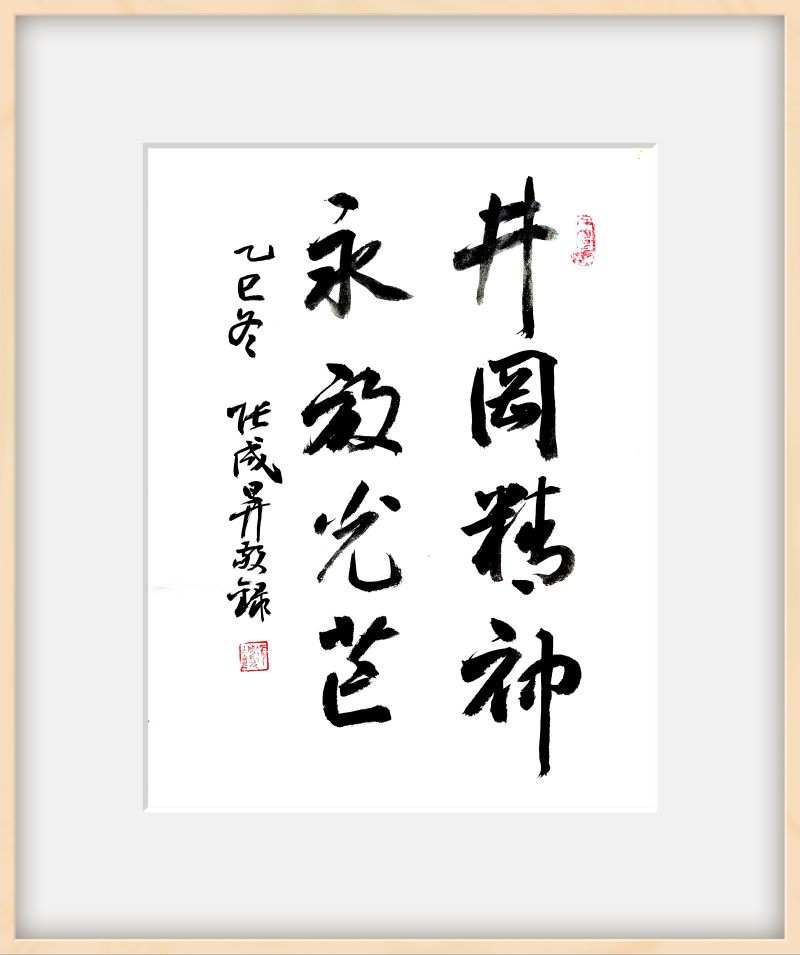 井岡精神
永放光芒
乙巳冬 張成昇敬録